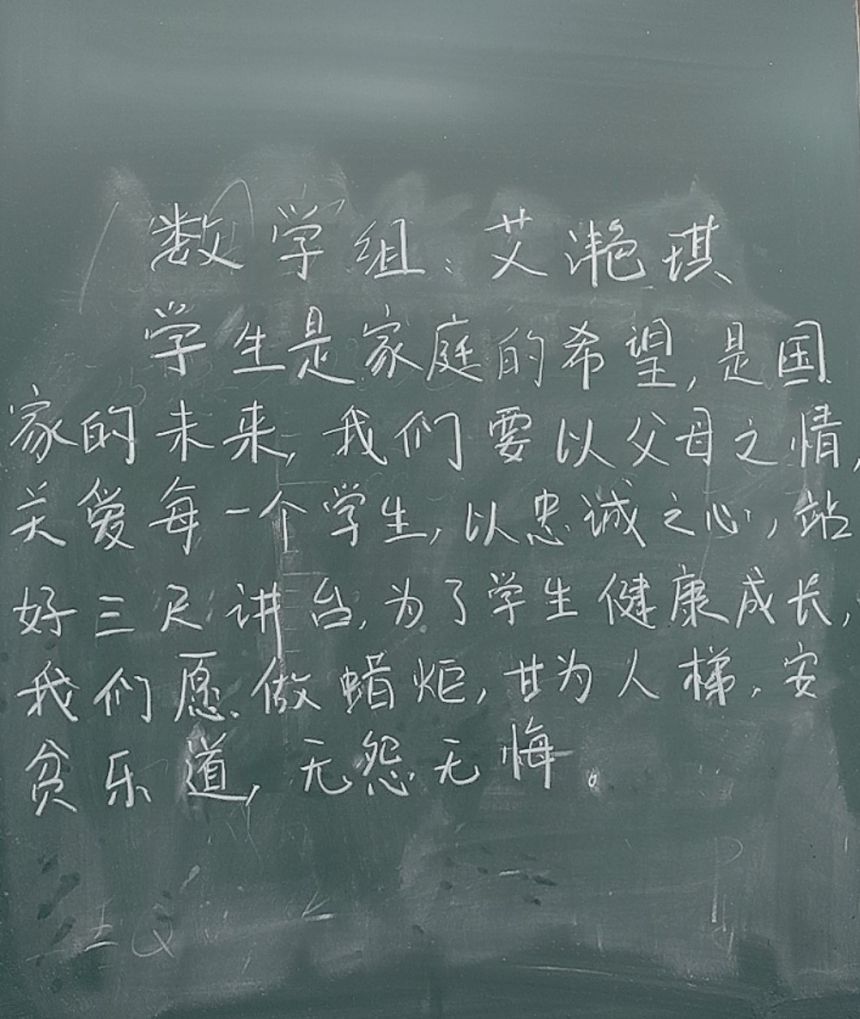 数学组:艾滟琪
学生是家庭的希望,是国
家的未来,我们要以父母之情,
关爱每一个学生,以忠诚之心,站
好三尺讲台,为了学生健康成长,
我们愿做蜡炬,甘为人梯,安
贫乐道,无怨无悔。